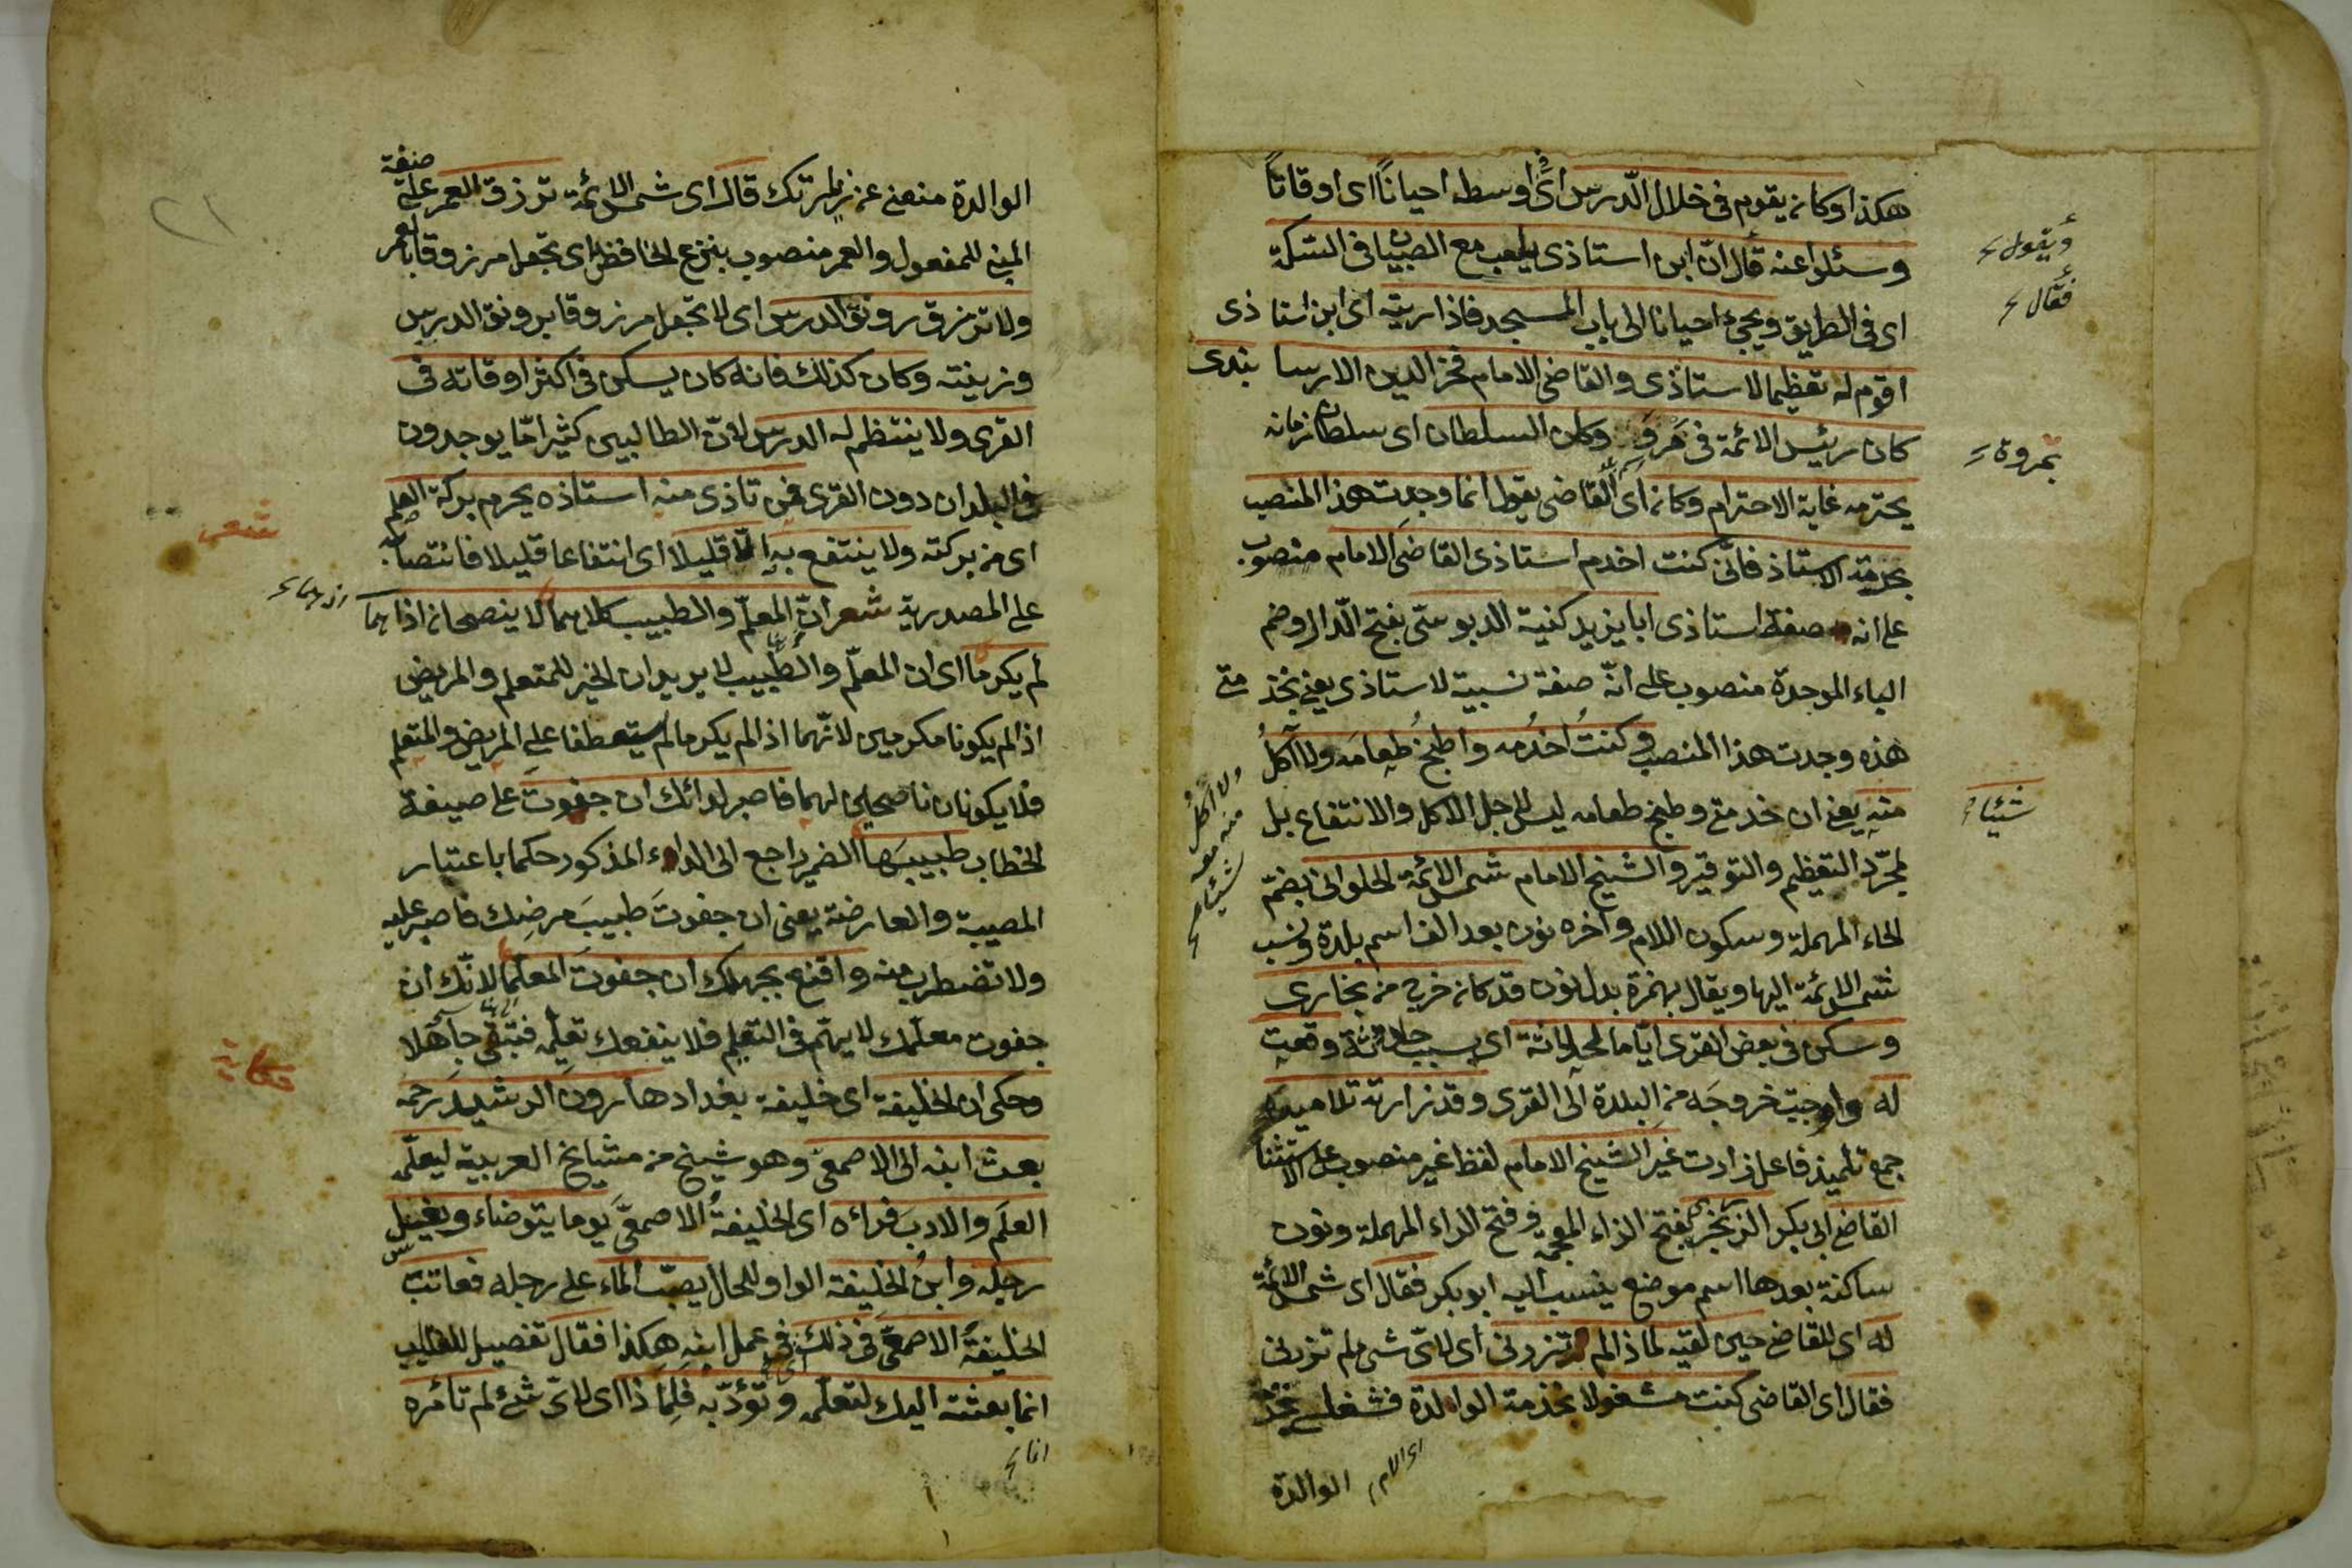 هكذا وكان يقوم في خلال الدّرس اى في اوسطه احياناً اى اوقاتاً
وسئلوا عنه قال انّ ابن استاذى يلعب مع الصبيان فى السكة
اى فى الطريق ويجئ احيانا الى باب المسجد فاذا رايته اى ابن استاذى
اقوم له تعظيما لاستاذى والقاضى الامام فخر الدين الارسابندى
كان رئيس الائمة فى مَروَ وكان السلطان اى سلطان زمانه
يحترمه غاية الاحترام وكان اى القاضى يقول انما وجدت هذا المنصب
بحرمة الاستاذ فانّى كنت اخدم استاذى القاضى الامام منصوب
على انه صفة استاذى ابا يزيد كنية الدبوسىّ بفتح الدّال وضم
الباء الموحدة منصوب على انّه صفة نسبية لاستاذى يعنى بخدمتى
هذه وجدت هذا المنصب وكنتُ اخدُمه واطبخُ طعامَه ولا آكلُ
منه يعنى ان خدمتى وطبخ طعامه ليس لاجل الاكل والانتفاع بل
لمجرّد التعظيم والتوقير والشيخ الامام شمس الائمة الحلوانى بضمّ
الحاء المهملة وسكون اللام وآخره نون بعد الف اسم بلدة ونسب
شمس الائمة اليها ويقال بهمزة بدل نون قد كان خرج من بخارى
وسكن فى بعض القرى ايّاما لحادثة اى بسبب حادثة وقعت
له واوجبت خروجَه من البلدة الى القرى وقد زارته تلاميذه
جمع تلميذ فاعل زارت غير الشيخ الامام لفظ غير منصوب على الاستثنا
القاضى ابى بكر الزرنجرى بفتح الزاء المعجمة وفتح الراء المهملة ونون
ساكنة بعدها اسم موضع ينسب اليه ابو بكر فقال اى شمس الائمة
له اى للقاضى حين لقيه لماذا لم تزرونى اى لاىّ شئ لم تزرنى
فقال اى القاضى كنت مشغولا بخدمة الوالدة فشغلى بخدمة
اى الام الوالدة
ويقول
فقال
بمروة
شيئا
ولا آكل منه معه شيئا
الوالدة منعنى عن زيارتك قال اى شمس الائمة ترزق العمر على صيغة
المبنى للمفعول والعمر منصوب بنزع الخافض اى تجعل مرزوقا بالعمر
ولا ترزق رونق الدرس اى لا تجعل مرزوقا برونق الدرس
وزينته وكان كذلك فانه كان يسكن فى اكثر اوقاته فى
القرى ولا ينتظم له الدرس لانّ الطالبين كثيرا ما يوجدون
فى البلدان دون القرى فمن تاذى منه استاذه يحرم بركة العلم
اى من بركته ولا ينتفع به الّا قليلا اى انتفاعا قليلا فانتصابه
على المصدرية شعر انّ المعلّم والطبيب كلاهما لا ينصحان اذا هما
لم يكرما اى ان المعلّم والطّبيب لا يريدان الخير للمتعلم والمريض
اذا لم يكونا مكرمين لانّهما اذا لم يكرما لم يستعطفا على المريض والمتعلم
فلا يكونان ناصحين لهما فاصبر لدائك ان جفوت على صيغة
الخطاب طبيبَها الضمير راجع الى الداء المذكور حكما باعتبار
المصيبة والعارضة يعنى ان جفوتَ طبيبَ مرضِك فاصبر عليه
ولا تضطرب منه واقنع بجهلك ان جفوتَ المعلّما لانّك ان
جفوت معلّمك لا يهتم فى التعليم فلا ينفعك تعليمه فتبقى جاهلا
وحكى ان الخليفة اى خليفة بغداد هارون الرشيد رحمه
بعث ابنه الى الاصمعىّ وهو شيخ من مشايخ العربية ليعلّمه
العلمَ والادبَ فراءه اى الخليفةُ الاصمعىَّ يوما يتوضاء ويغسل
رجلَه وابنُ الخليفة الواو للحال يصبّ الماء على رجله فعاتب
الخليفةُ الاصمعىَّ فى ذلك اى فى عمل ابنه هكذا فقال تفصيل للعتاب
انما بعثته اليك لتعلّمه وتؤدّبه فلماذا اى لاىّ شئ لم تأمره
٢١
شعر
اذا هما
حكاية